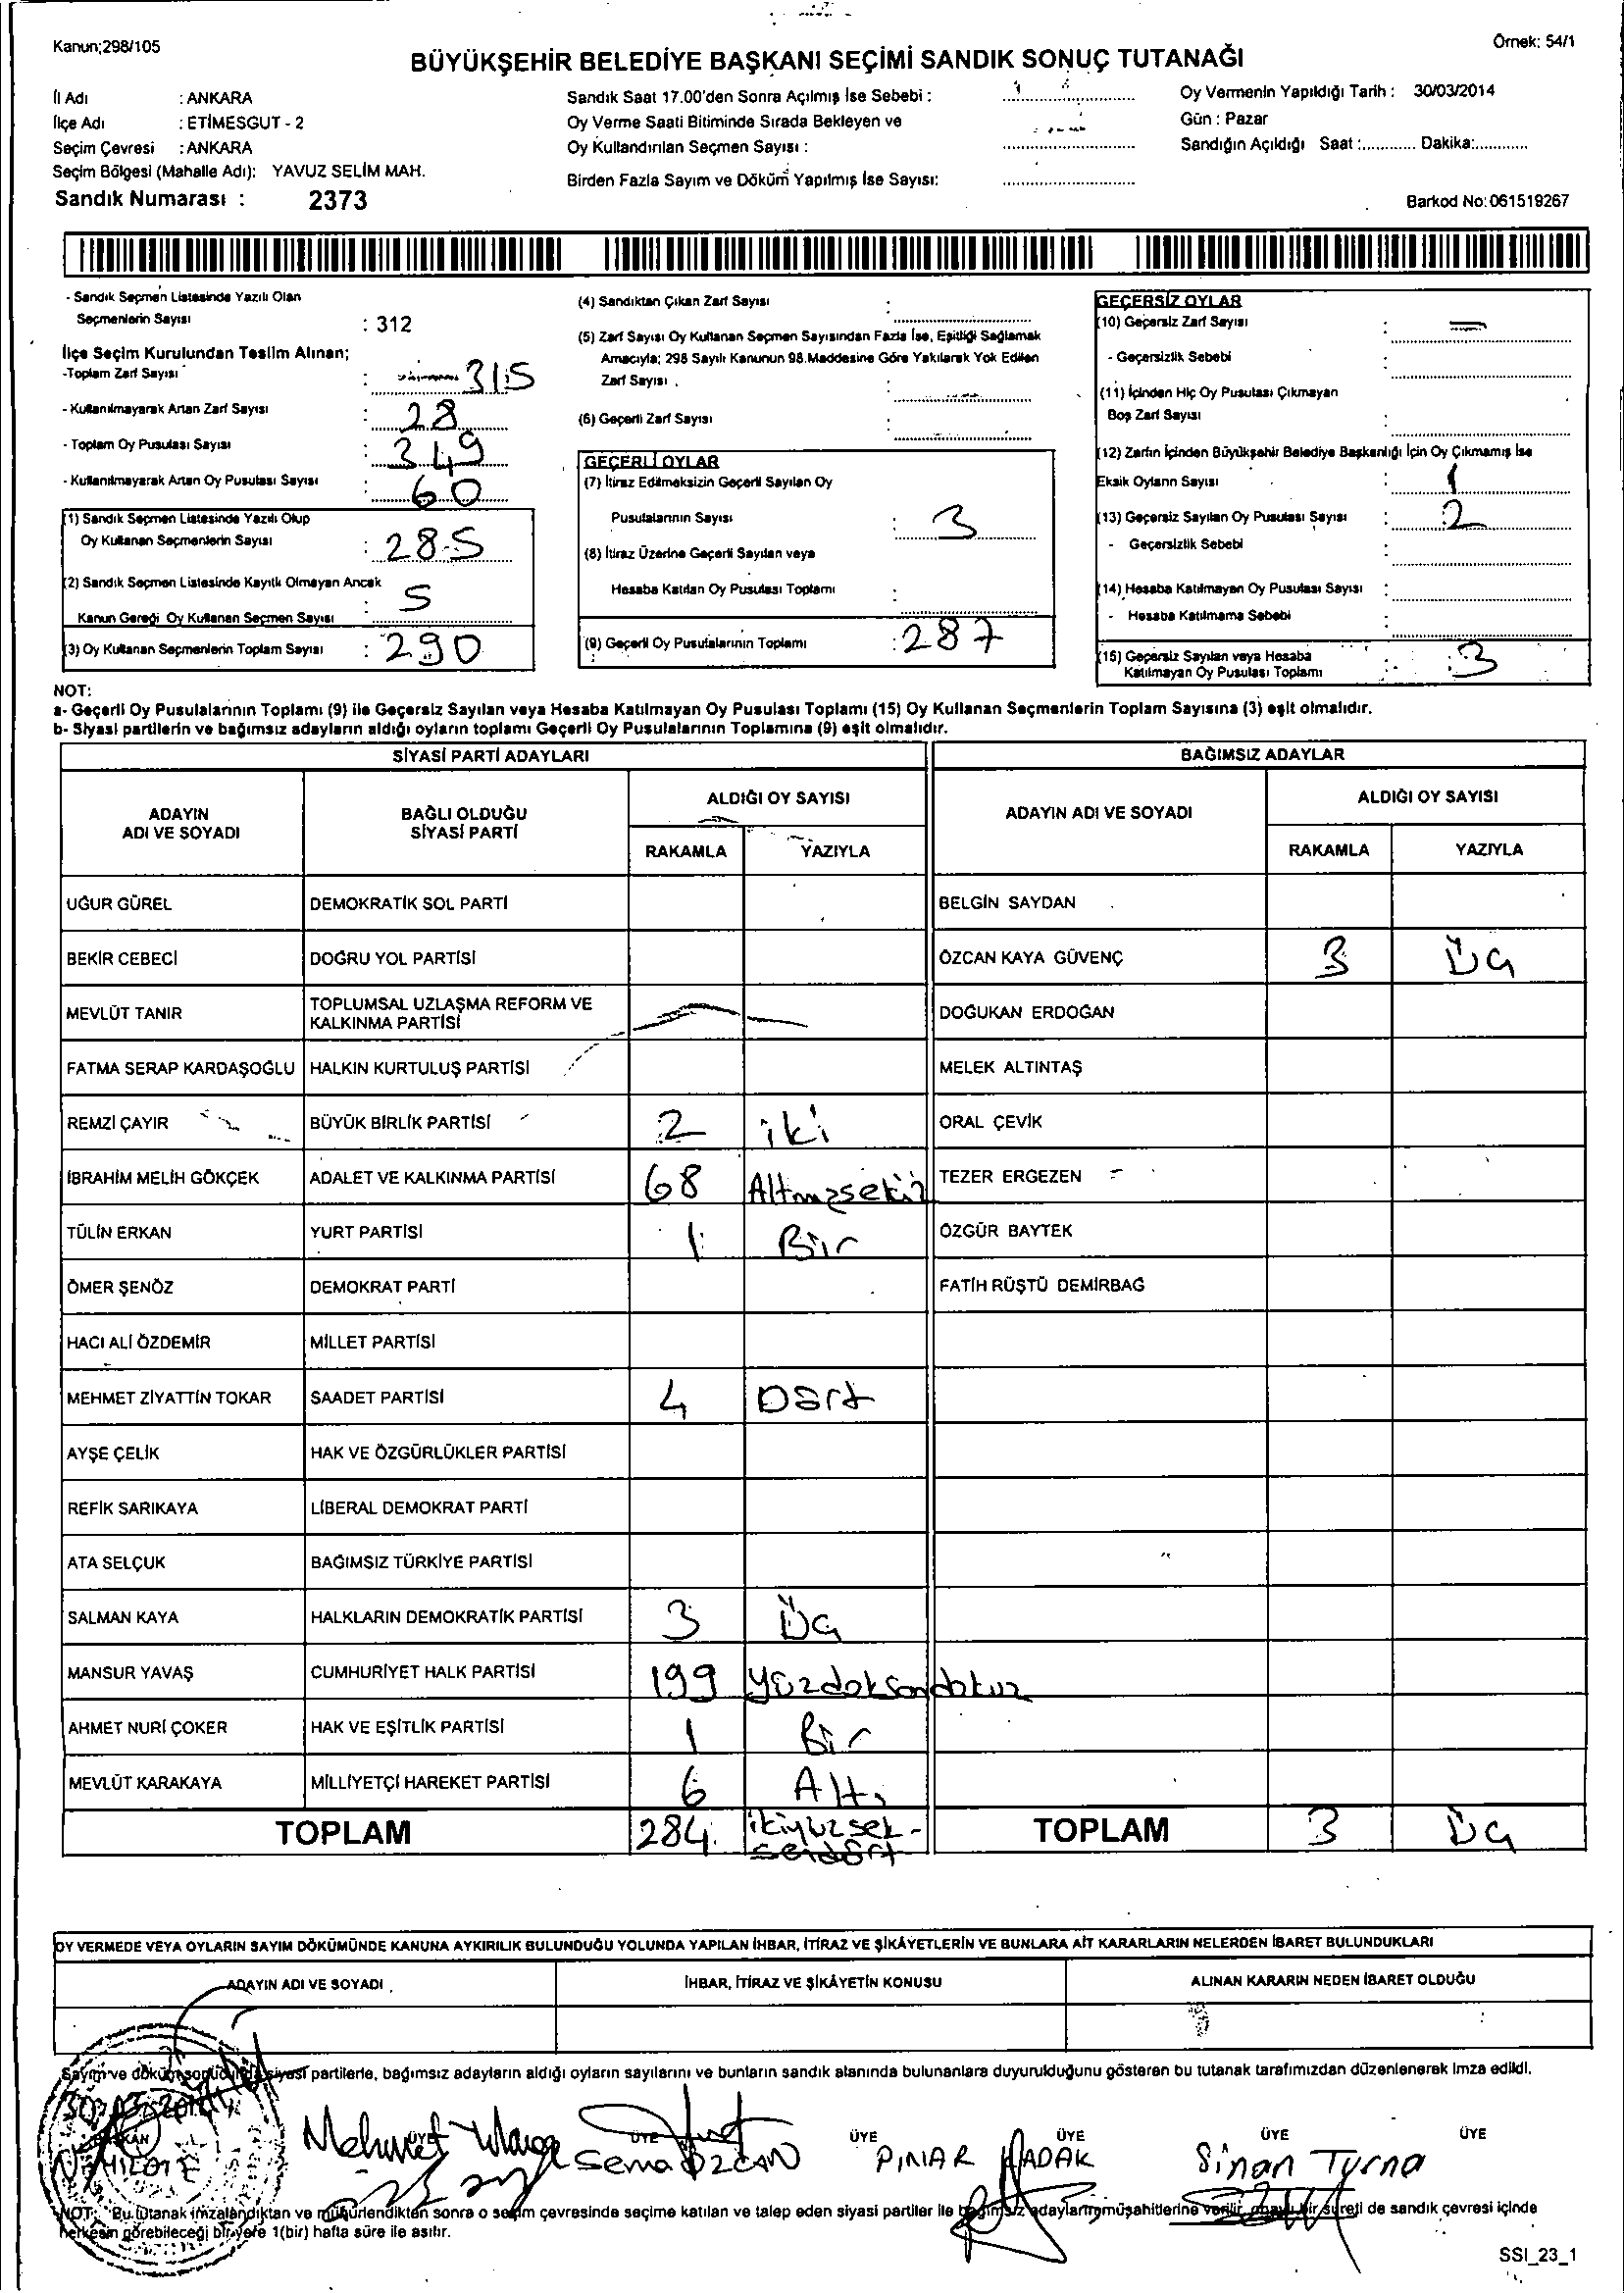 Kanun;298/105
Örnek: 54/1
BÜYÜKŞEHİR BELEDİYE BAŞKANI SEÇİMİ SANDIK SONUÇ TUTANAĞI
İl Adı : ANKARA
İlçe Adı : ETİMESGUT - 2
Seçim Çevresi : ANKARA
Seçim Bölgesi (Mahalle Adı): YAVUZ SELİM MAH.
Sandık Numarası : 2373
Sandık Saat 17.00'den Sonra Açılmış İse Sebebi :
Oy Verme Saati Bitiminde Sırada Bekleyen ve
Oy Kullandırılan Seçmen Sayısı :
Birden Fazla Sayım ve Döküm Yapılmış İse Sayısı:
Oy Vermenin Yapıldığı Tarih : 30/03/2014
Gün : Pazar
Sandığın Açıldığı Saat :............ Dakika:............
Barkod No:061519267
- Sandık Seçmen Listesinde Yazılı Olan
Seçmenlerin Sayısı : 312
İlçe Seçim Kurulundan Teslim Alınan;
-Toplam Zarf Sayısı : 315
- Kullanılmayarak Artan Zarf Sayısı : 28
- Toplam Oy Pusulası Sayısı : 349
- Kullanılmayarak Artan Oy Pusulası Sayısı : 60
(1) Sandık Seçmen Listesinde Yazılı Olup
Oy Kullanan Seçmenlerin Sayısı : 285
(2) Sandık Seçmen Listesinde Kayıtlı Olmayan Ancak
Kanun Gereği Oy Kullanan Seçmen Sayısı : 5
(3) Oy Kullanan Seçmenlerin Toplam Sayısı : 290
(4) Sandıktan Çıkan Zarf Sayısı :
(5) Zarf Sayısı Oy Kullanan Seçmen Sayısından Fazla İse, Eşitliği Sağlamak
Amacıyla; 298 Sayılı Kanunun 98.Maddesine Göre Yakılarak Yok Edilen
Zarf Sayısı :
(6) Geçerli Zarf Sayısı :
GEÇERLİ OYLAR
(7) İtiraz Edilmeksizin Geçerli Sayılan Oy
Pusulalarının Sayısı : 3
(8) İtiraz Üzerine Geçerli Sayılan veya
Hesaba Katılan Oy Pusulası Toplamı :
(9) Geçerli Oy Pusulalarının Toplamı : 287
GEÇERSİZ OYLAR
(10) Geçersiz Zarf Sayısı : —
- Geçersizlik Sebebi :
(11) İçinden Hiç Oy Pusulası Çıkmayan
Boş Zarf Sayısı
(12) Zarfın İçinden Büyükşehir Belediye Başkanlığı İçin Oy Çıkmamış İse
Eksik Oyların Sayısı : 1
(13) Geçersiz Sayılan Oy Pusulası Sayısı : 2
- Geçersizlik Sebebi :
(14) Hesaba Katılmayan Oy Pusulası Sayısı :
- Hesaba Katılmama Sebebi :
(15) Geçersiz Sayılan veya Hesaba
Katılmayan Oy Pusulası Toplamı : 3
NOT:
a- Geçerli Oy Pusulalarının Toplamı (9) ile Geçersiz Sayılan veya Hesaba Katılmayan Oy Pusulası Toplamı (15) Oy Kullanan Seçmenlerin Toplam Sayısına (3) eşit olmalıdır.
b- Siyasi partilerin ve bağımsız adayların aldığı oyların toplamı Geçerli Oy Pusulalarının Toplamına (9) eşit olmalıdır.
SİYASİ PARTİ ADAYLARI BAĞIMSIZ ADAYLAR
ADAYIN ADI VE SOYADI BAĞLI OLDUĞU SİYASİ PARTİ ALDIĞI OY SAYISI ADAYIN ADI VE SOYADI ALDIĞI OY SAYISI
RAKAMLA YAZIYLA RAKAMLA YAZIYLA
UĞUR GÜREL DEMOKRATİK SOL PARTİ BELGİN SAYDAN
BEKİR CEBECİ DOĞRU YOL PARTİSİ ÖZCAN KAYA GÜVENÇ 3 Üç
MEVLÜT TANIR TOPLUMSAL UZLAŞMA REFORM VE KALKINMA PARTİSİ DOĞUKAN ERDOĞAN
FATMA SERAP KARDAŞOĞLU HALKIN KURTULUŞ PARTİSİ MELEK ALTINTAŞ
REMZİ ÇAYIR BÜYÜK BİRLİK PARTİSİ 2 iki ORAL ÇEVİK
İBRAHİM MELİH GÖKÇEK ADALET VE KALKINMA PARTİSİ 68 Altmışsekiz TEZER ERGEZEN
TÜLİN ERKAN YURT PARTİSİ 1 Bir ÖZGÜR BAYTEK
ÖMER ŞENÖZ DEMOKRAT PARTİ FATİH RÜŞTÜ DEMİRBAĞ
HACI ALİ ÖZDEMİR MİLLET PARTİSİ
MEHMET ZİYATTİN TOKAR SAADET PARTİSİ 4 Dört
AYŞE ÇELİK HAK VE ÖZGÜRLÜKLER PARTİSİ
REFİK SARIKAYA LİBERAL DEMOKRAT PARTİ
ATA SELÇUK BAĞIMSIZ TÜRKİYE PARTİSİ
SALMAN KAYA HALKLARIN DEMOKRATİK PARTİSİ 3 Üç
MANSUR YAVAŞ CUMHURİYET HALK PARTİSİ 199 Yüzdoksandokuz
AHMET NURİ ÇOKER HAK VE EŞİTLİK PARTİSİ 1 Bir
MEVLÜT KARAKAYA MİLLİYETÇİ HAREKET PARTİSİ 6 Altı
TOPLAM 284 ikiyüzsek-
sendört TOPLAM 3 Üç
OY VERMEDE VEYA OYLARIN SAYIM DÖKÜMÜNDE KANUNA AYKIRILIK BULUNDUĞU YOLUNDA YAPILAN İHBAR, İTİRAZ VE ŞİKÂYETLERİN VE BUNLARA AİT KARARLARIN NELERDEN İBARET BULUNDUKLARI
ADAYIN ADI VE SOYADI İHBAR, İTİRAZ VE ŞİKÂYETİN KONUSU ALINAN KARARIN NEDEN İBARET OLDUĞU
Sayım ve döküm sonucunda siyasi partilerle, bağımsız adayların aldığı oyların sayılarını ve bunların sandık alanında bulunanlara duyurulduğunu gösteren bu tutanak tarafımızdan düzenlenerek imza edildi.
ÜYE ÜYE ÜYE ÜYE ÜYE ÜYE
Mehmet Sema ÖZCAN PINAR HADAK Sinan Turna
NOT: Bu tutanak imzalandıktan ve mühürlendikten sonra o seçim çevresinde seçime katılan ve talep eden siyasi partiler ile bağımsız adayların müşahitlerine verilir, onaylı bir sureti de sandık çevresi içinde
herkesin görebileceği bir yere 1(bir) hafta süre ile asılır.
SSI_23_1